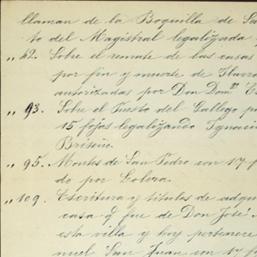 llaman de la Boquilla de Sa
to del Magistral legalizada
„ 62. Sobre el remate de las casas
por fin y muerte de Ibarro
autorizadas por Don Dom.º
„ 93. Sobre el Puesto del Gallego po
15 fojas legalizando Ygnacio
Briseño.
„ 95. Montes de San Pedro con 17 f
do por Lobera.
„ 109. Escritura y titulos de adqu
casa q fue de Don José
esta villa y hoy pertenece
nuel San Juan con 17 f